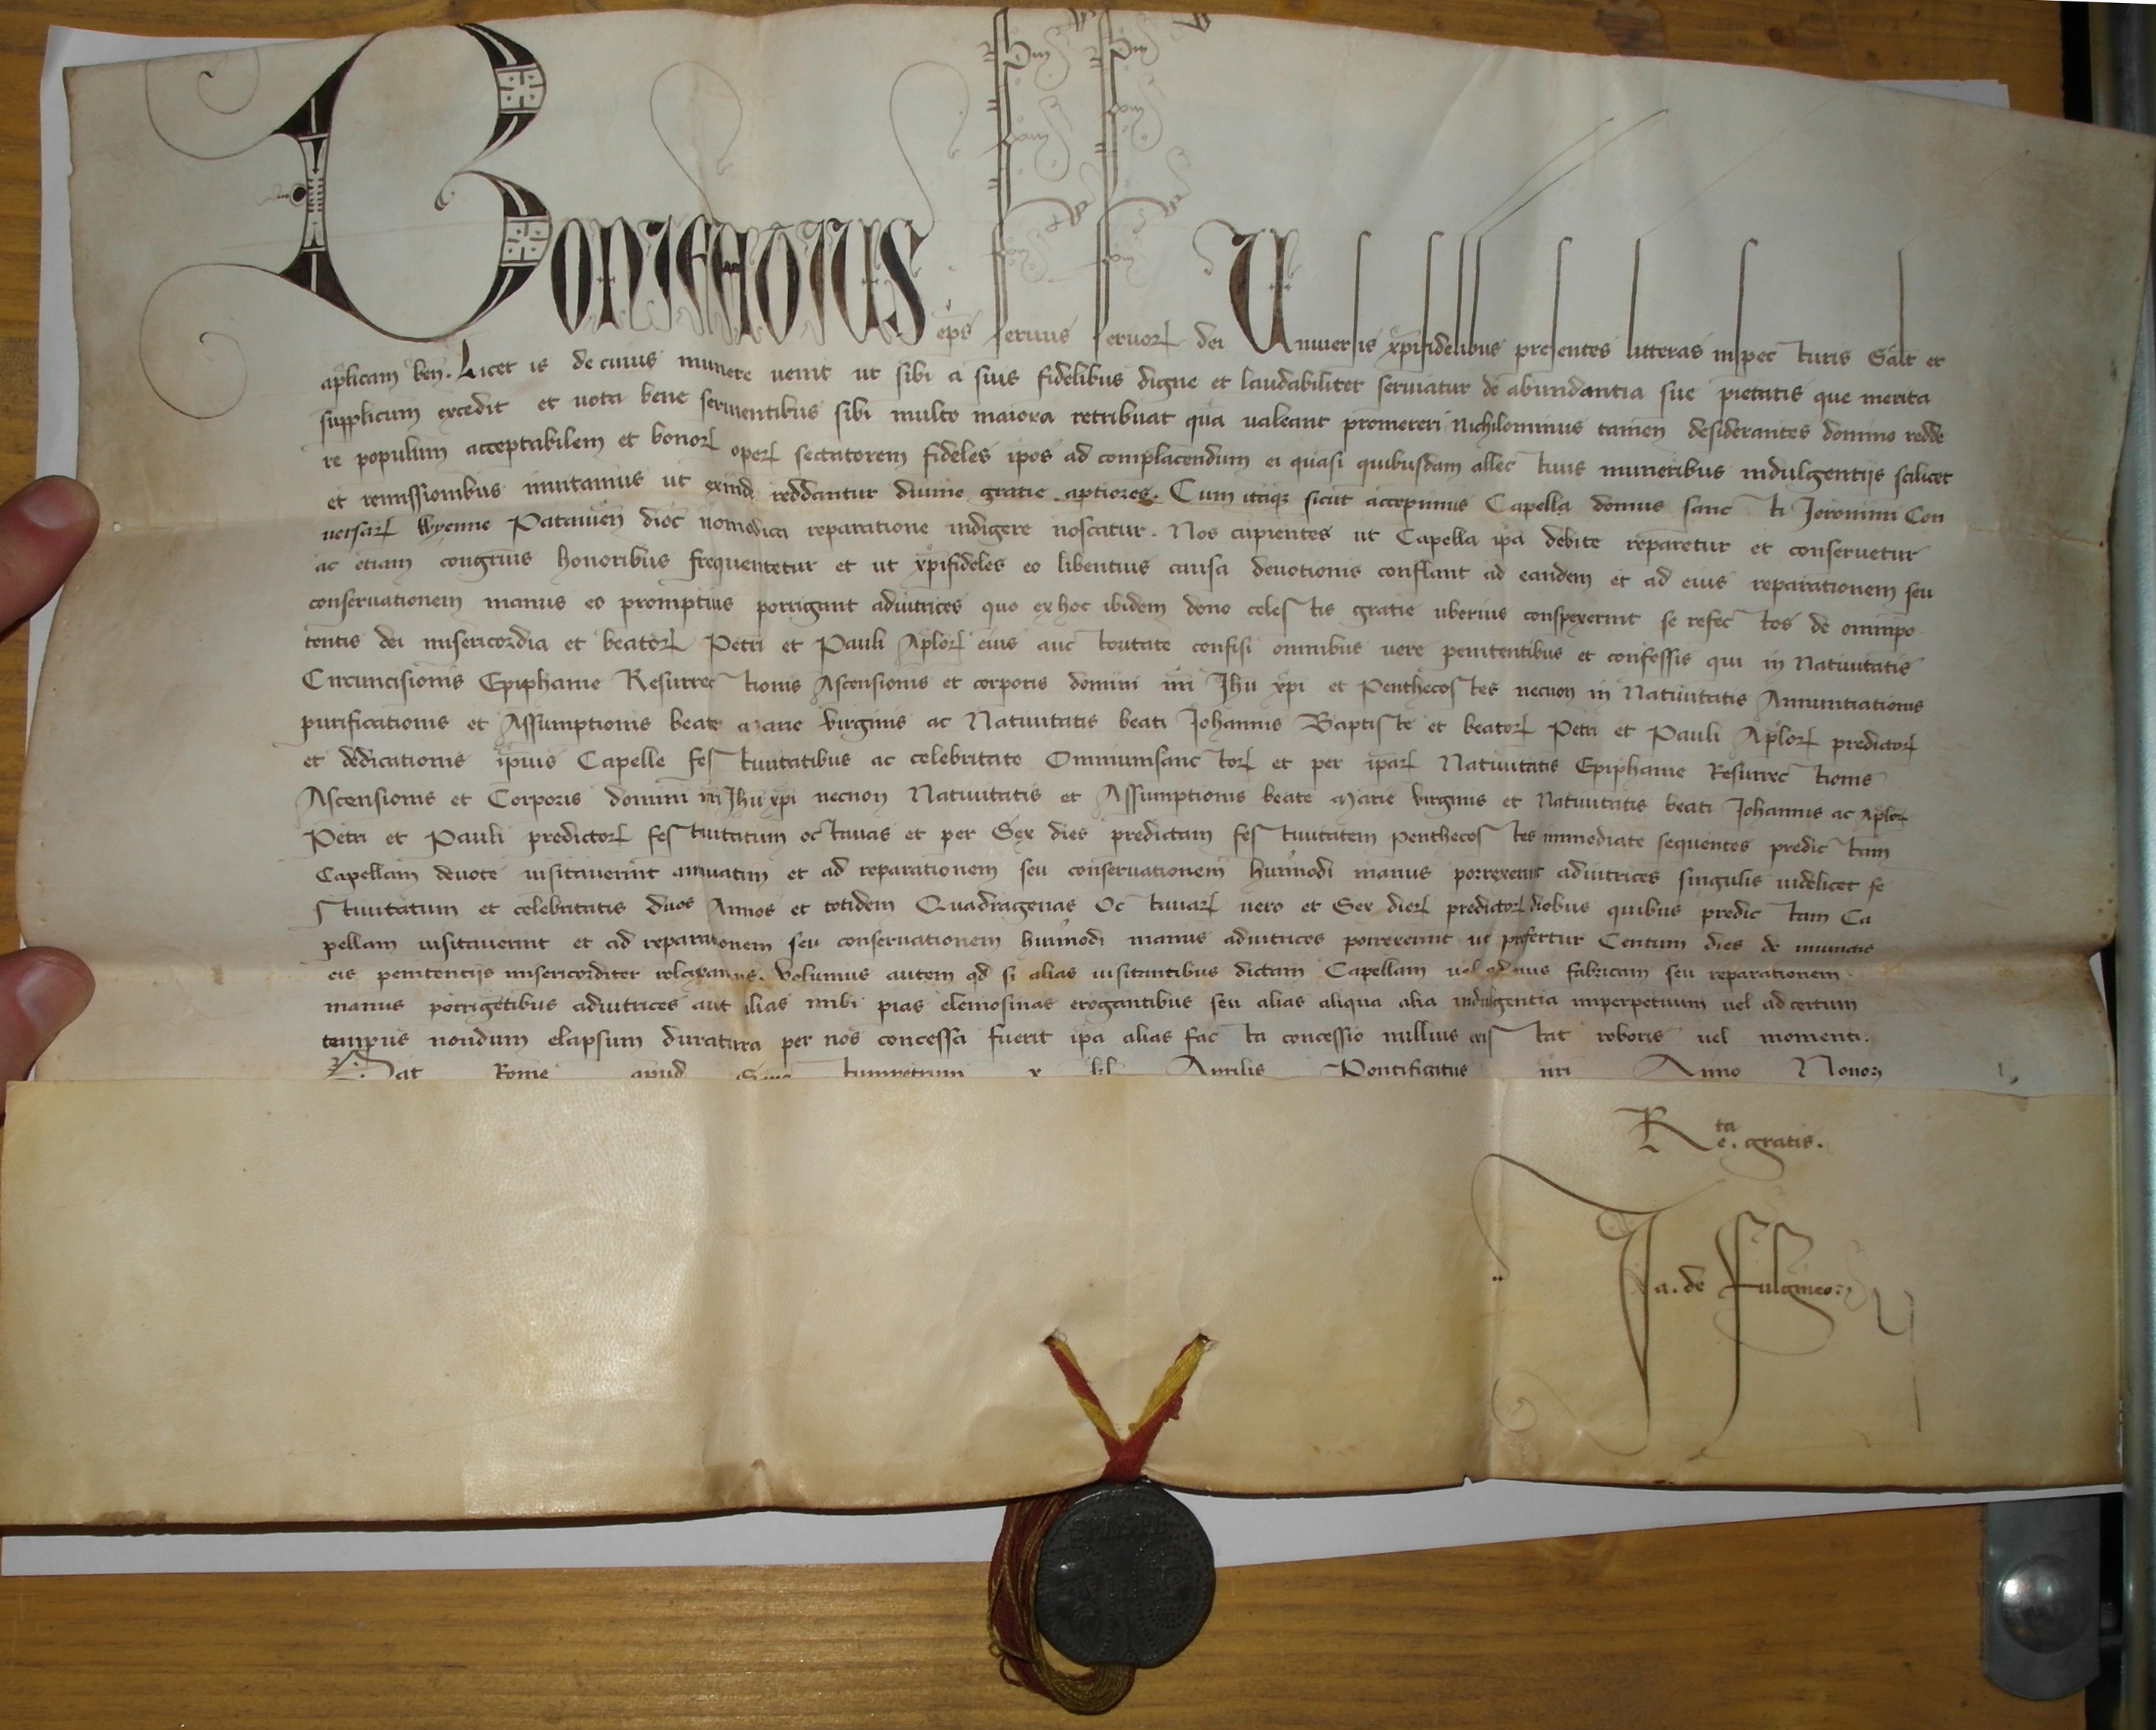 Bonifatius ep̄s seruus seruoꝝ dei Uniuersis xp̄ifidelibus presentes litteras inspecturis Salt̄ et
aplicam ben. Licet is de cuius munere uenit ut sibi a suis fidelibus digne et laudabiliter seruiatur de abundantia sue pietatis que merita
supplicum excedit et uota bene seruientibus sibi multo maiora retribuat qua ualeant promereri Nichilominus tamen desiderantes domino redde
re populum acceptabilem et bonoꝝ opeꝝ sectatorem fideles ipos ad complacendum ei quasi quibusdam allectiuis muneribus indulgentijs scilicet
et remissionibus inuitamus ut exinde reddantur diuine gratie aptiores. Cum itaqꝫ sicut accepimus Capella domus sancti Jeronimi Con
uersaꝝ Wyenne Patauien dioc̄ nomodica reparatione indigere noscatur. Nos cupientes ut Capella ip̄a debite reparetur et conseruetur
ac etiam congruis honoribus frequentetur et ut xp̄ifideles eo libentius causa deuotionis confluant ad eandem et ad eius reparationem seu
conseruationem manus eo promptius porrigant adiutrices quo ex hoc ibidem dono celestis gratie uberius conspexerint se refectos de omnipo
tentis dei misericordia et beatoꝝ Petri et Pauli Aploꝝ eius auctoritate confisi omnibus uere penitentibus et confessis qui in Natiuitatis
Circuncisionis Epiphanie Resurrectionis Ascensionis et corporis domini nr̄i Jhu xp̄i et Penthecostes necnon in Natiuitatis Annuntiationis
purificationis et Assumptionis beate Marie Virginis ac Natiuitatis beati Johannis Baptiste et beatoꝝ Petri et Pauli Aploꝝ predictoꝝ
et dedicationis ip̄ius Capelle festiuitatibus ac celebritate Omniumsanctoꝝ et per ip̄aꝝ Natiuitatis Epiphanie Resurrectionis
Ascensionis et Corporis domini nr̄i Jhu xp̄i necnon Natiuitatis et Assumptionis beate Marie Virginis et Natiuitatis beati Johannis ac Aploꝝ
Petri et Pauli predictoꝝ festiuitatum octauas et per Sex dies predictam festiuitatem Penthecostes immediate sequentes predictam
Capellam deuote uisitauerint annuatim et ad reparationem seu conseruationem hui'modi manus porrexerint adiutrices singulis uidelicet fe
stiuitatum et celebritatis duos Annos et totidem Quadragenas Octauaꝝ uero et Sex dieꝝ predictoꝝ diebus quibus predictam Ca
pellam uisitauerint et ad reparationem seu conseruationem hui'modi manus adiutrices porrexerint ut prefertur Centum dies de iniunctis
eis penitentijs misericorditer relaxamus. Volumus autem qd si alias uisitantibus dictam Capellam uel ad eius fabricam seu reparationem
manus porrigētibus adiutrices aut alias inibi pias elemosinas erogantibus seu alias aliqua alia indulgentia imperpetuum uel ad certum
tempus nondum elapsum duratura per nos concessa fuerit ip̄a alias facta concessio nullius existat roboris uel momenti.
Dat Rome apud Sanctumpetrum x kl Aprilis Pontificatus nr̄i Anno Nono
Rta
e. gratis.
Ja. de Fulgineo